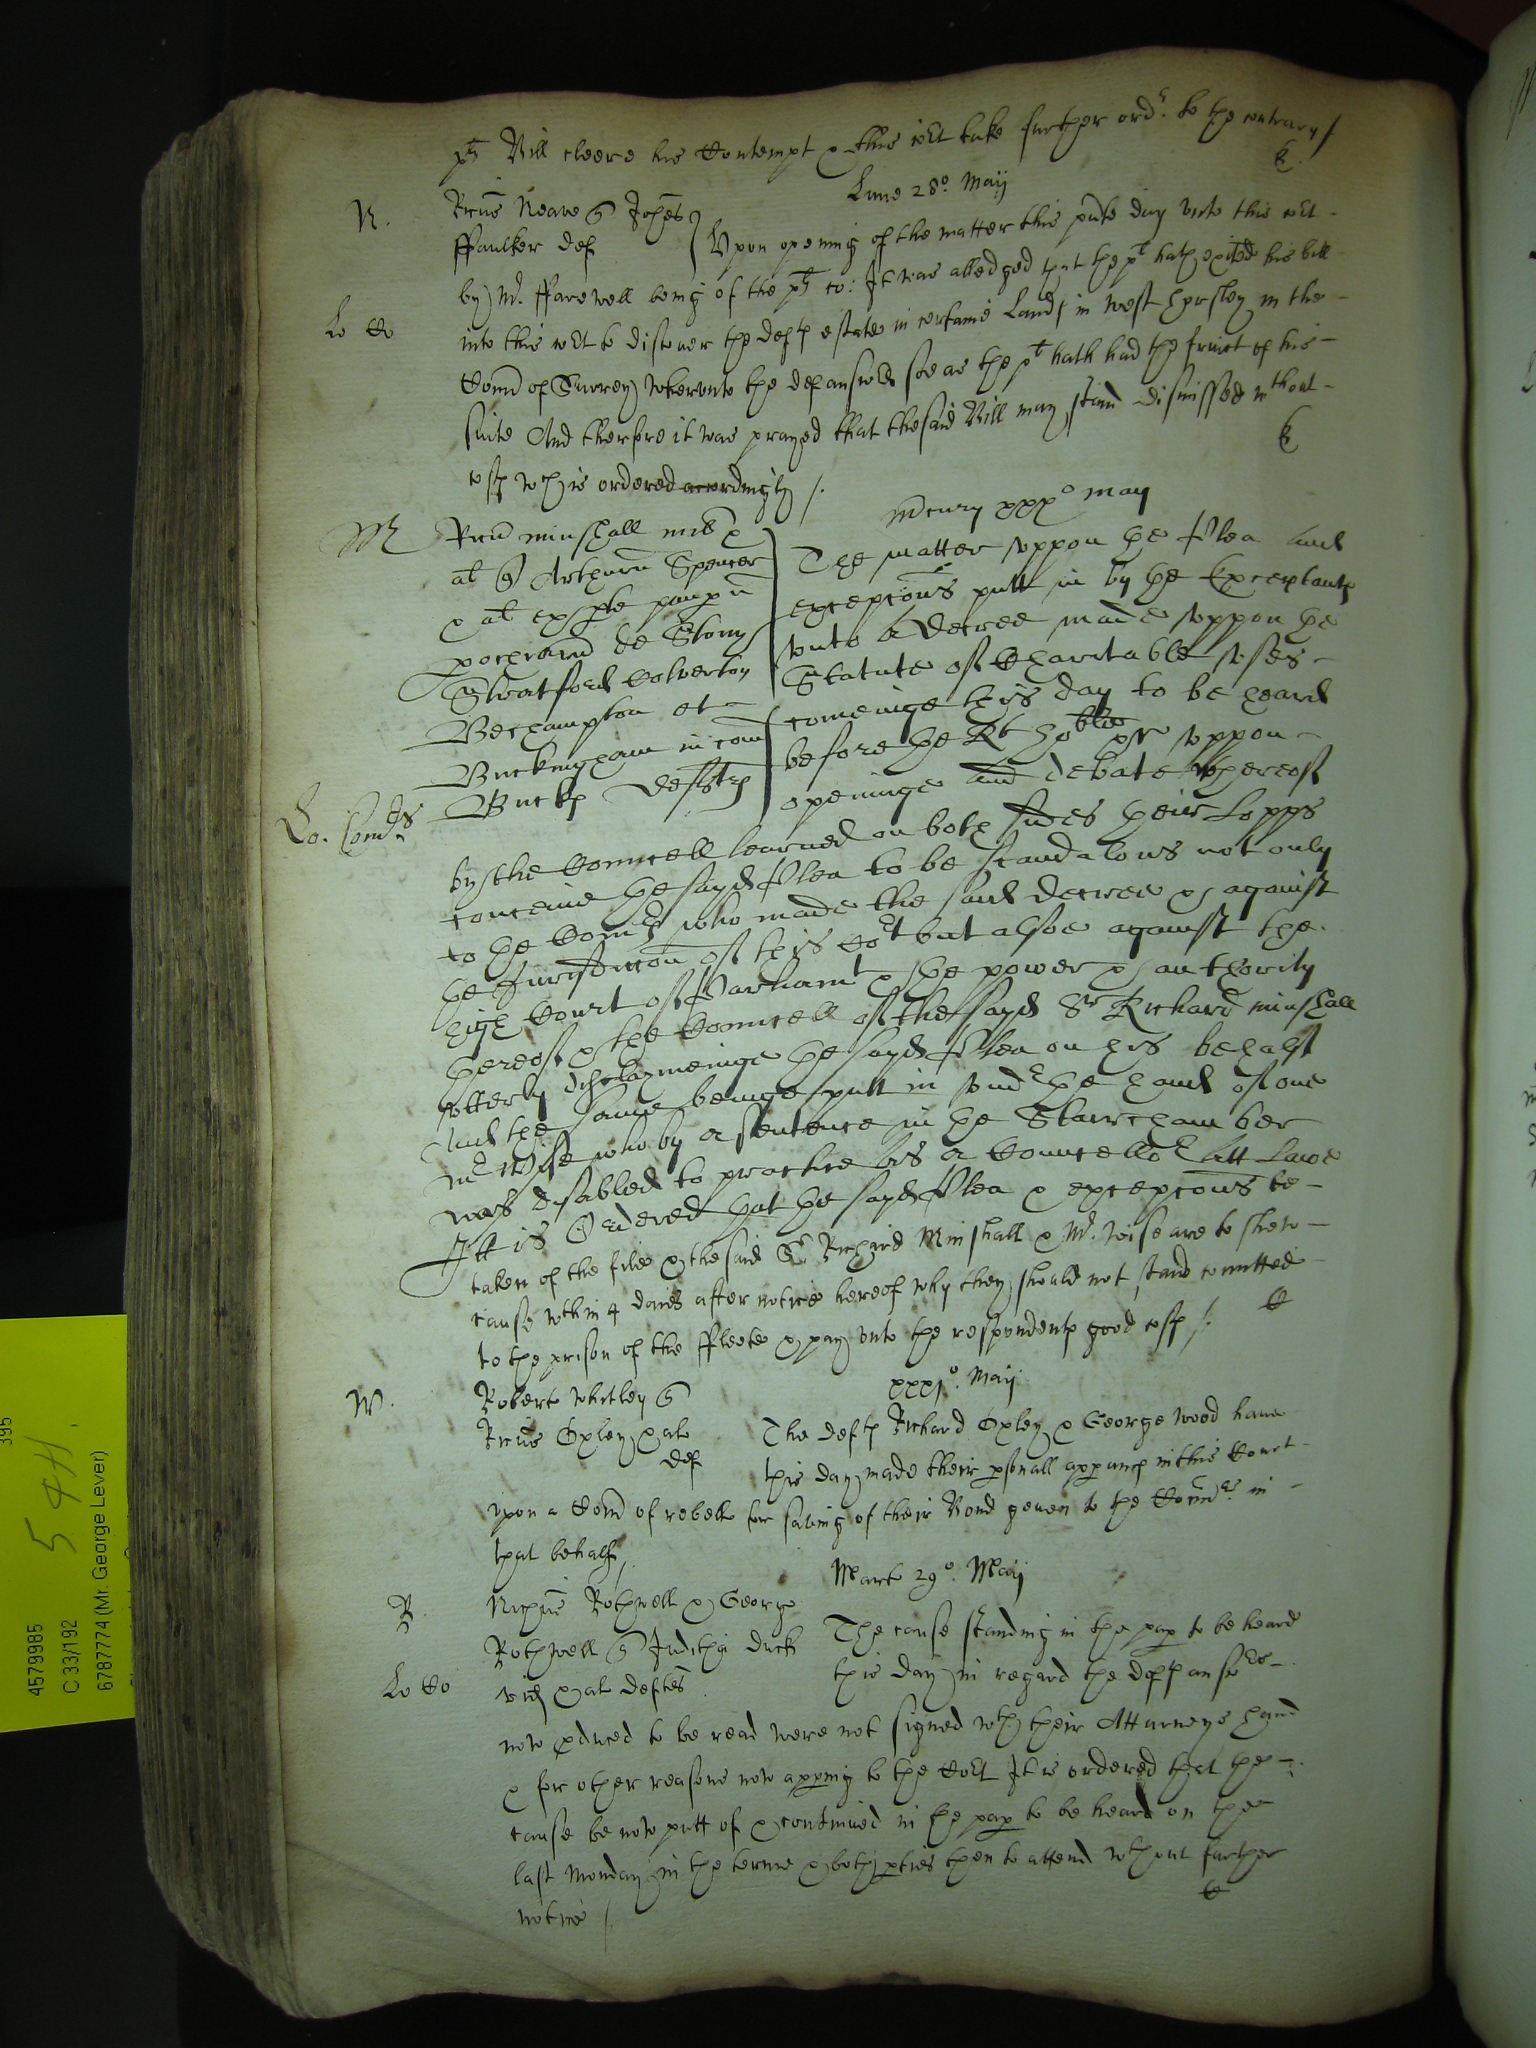 plt Bill cleere his Contempt & this cort take further ordr to the contrary /
Lune 28o Maij
N. Ricus Neave q Johes
ffaulker def } Upon opening of the matter this pnte day unto this cort
by Mr. ffarewell being of the plts co: It was alledged that the plt hath exited his bill
Lo Co into this cort to discover the defts estate in certaine Lands in west horsley in the
Com of Surrey wherunto the def answered soe as the plt hath had the fruict of his
suite And therfore it was prayed that the said Bill may stand dismissed wthout
costs wch is ordered accordingly /.
Mercury xxxo may
M Ricus minshall miles &
al q Arthurum Spencer
& al ex pte paup in
pochiarum de Stony
Stratford Colverton
Bechampton et
Buckingham in com
Buck defts
The matter uppon the Plea and
excepcons putt in by the Exceptants
unto a decree made uppon the
Statute of Charitable uses
comeinge this day to be heard
before the Rt hoble uppon
openinge and debate whereof
Lo. Comrs
by the Councell learned on both sides their Lopps
conceive the sayd Plea to be scandalous not only
to the Comrs who made the said decree & against
the Jurisdiccon of this Cort but alsoe against the
high Court of Parliamt & the power & authority
thereof & the Councell of the sayd Sr Richard minshall
utterly disclaymeinge the sayd Plea on his behalf
And the same beinge putt in undr the hand of one
Mr Wise who by a sentence in the Starrchamber
was disabled to practice as a Councellor att Lawe
Itt is Ordered that the sayd Plea & excepcons be
taken of the file & the said Sr Richard Minshall & Mr. Wise are to shew
cause wthin 4 daies after notice hereof why they should not stand comitted
to the prison of the ffleete & pay unto the respondents good costs /.
xxxjo. Maij
W. Roberte Whitley q
Ricus Oxley & ale
def
The defts Richard Oxley & George Wood have
this day made their psonall appance in this Court
upon a Com of rebell for saving of their Bond geven to the Comrs in
that behalf /.
Marte 29o. Maij
R Nichus Rothwell & George
Rothwell q Juditha Duck
Lo Co vid & al deftes
The cause standing in the pap to be heard
this day in regard the defts answeres
now pduced to be read were not signed wth their Attorneys hand
& for other reasons now apping to the Cort It is ordered that the
cause be now putt of & continued in the pap to be heard on the
last Monday in the terme & both pties then to attend wthout further
notice /.
4579985
C 33/192
6787774 (Mr. George Lever)
395